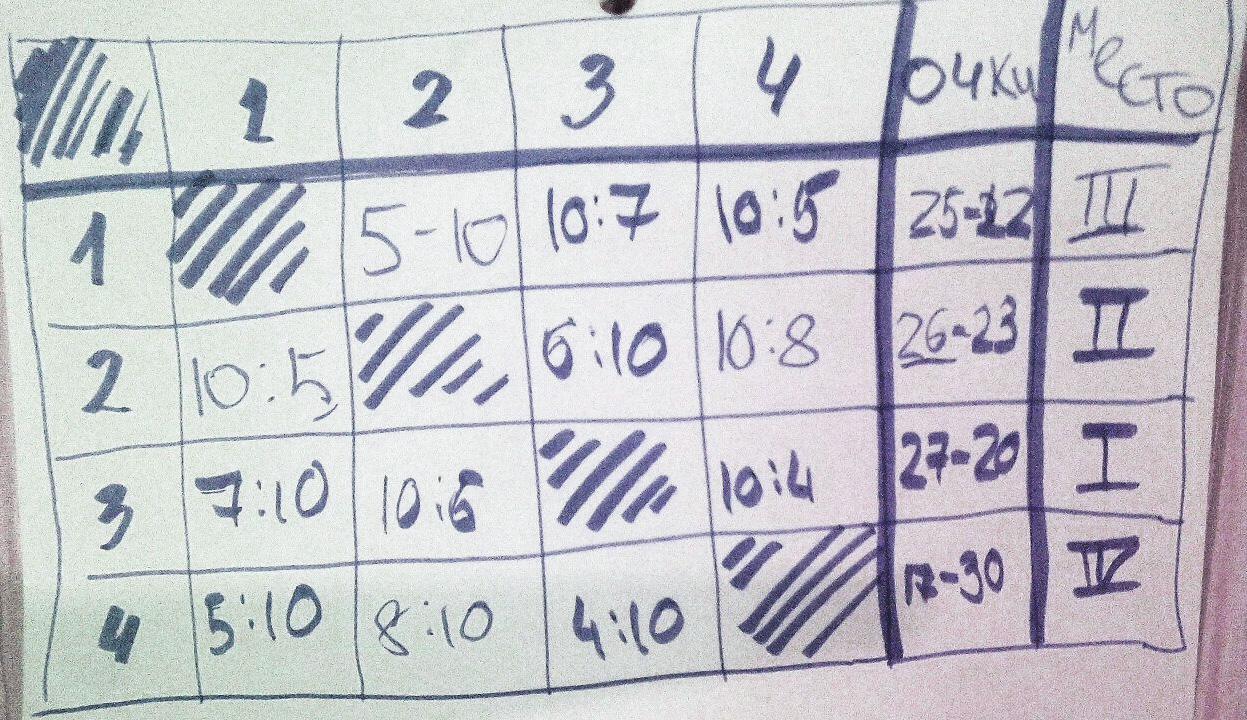 1 2 3 4 Очки Место
1 5-10 10:7 10:5 25-22 III
2 10:5 6:10 10:8 26-23 II
3 7:10 10:6 10:4 27-20 I
4 5:10 8:10 4:10 17-30 IV